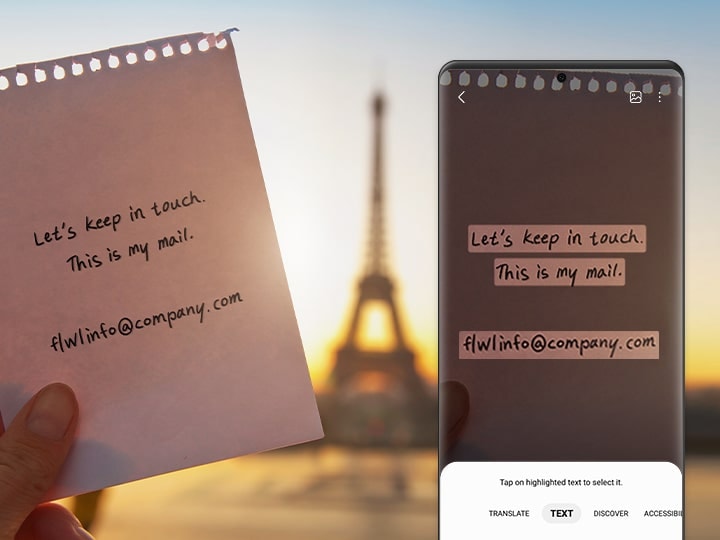 Let's keep in touch.
This is my mail.
flwlinfo@company.com
Let's keep in touch.
This is my mail.
flwlinfo@company.com
Tap on highlighted text to select it.
TRANSLATE TEXT DISCOVER